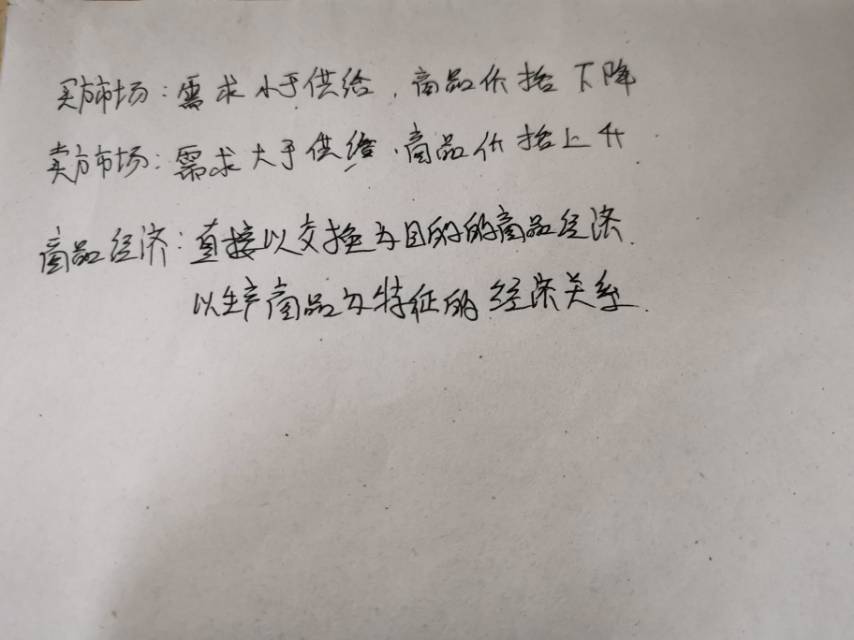 买方市场：需求小于供给，商品价格下降
卖方市场：需求大于供给，商品价格上升
商品经济：直接以交换为目的的商品经济
以生产商品为特征的经济关系.